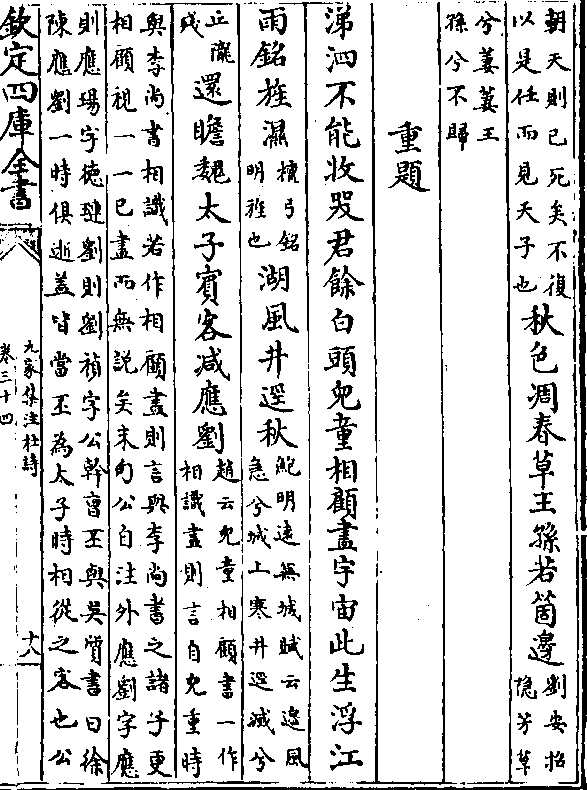 朝天則已死矣不復
以是任而見天子也
秋色凋春草王孫若箇邊
劉安招
隱芳草
兮萋萋王
孫兮不歸
重題
涕泗不能收哭君餘白頭兒童相顧盡宇宙此生浮江
雨銘旌濕
檀弓銘
明旌也
湖風井逕秋
鮑明遠蕪城賦云邊風
急兮城上寒井逕滅兮
丘隴
殘
還瞻魏太子賓客減應劉
趙云兒童相顧書一作
相識盡則言自兒童時
與李尚書相識若作相顧盡則言與李尚書之諸子更
相顧視一一已盡而無說矣末句公自注外應劉字應
則應瑒字德璉劉則劉楨字公幹曹丕與吳質書曰徐
陳應劉一時俱逝蓋皆當丕為太子時相從之客也公
欽定四庫全書
九家集注杜詩
卷三十四
十八